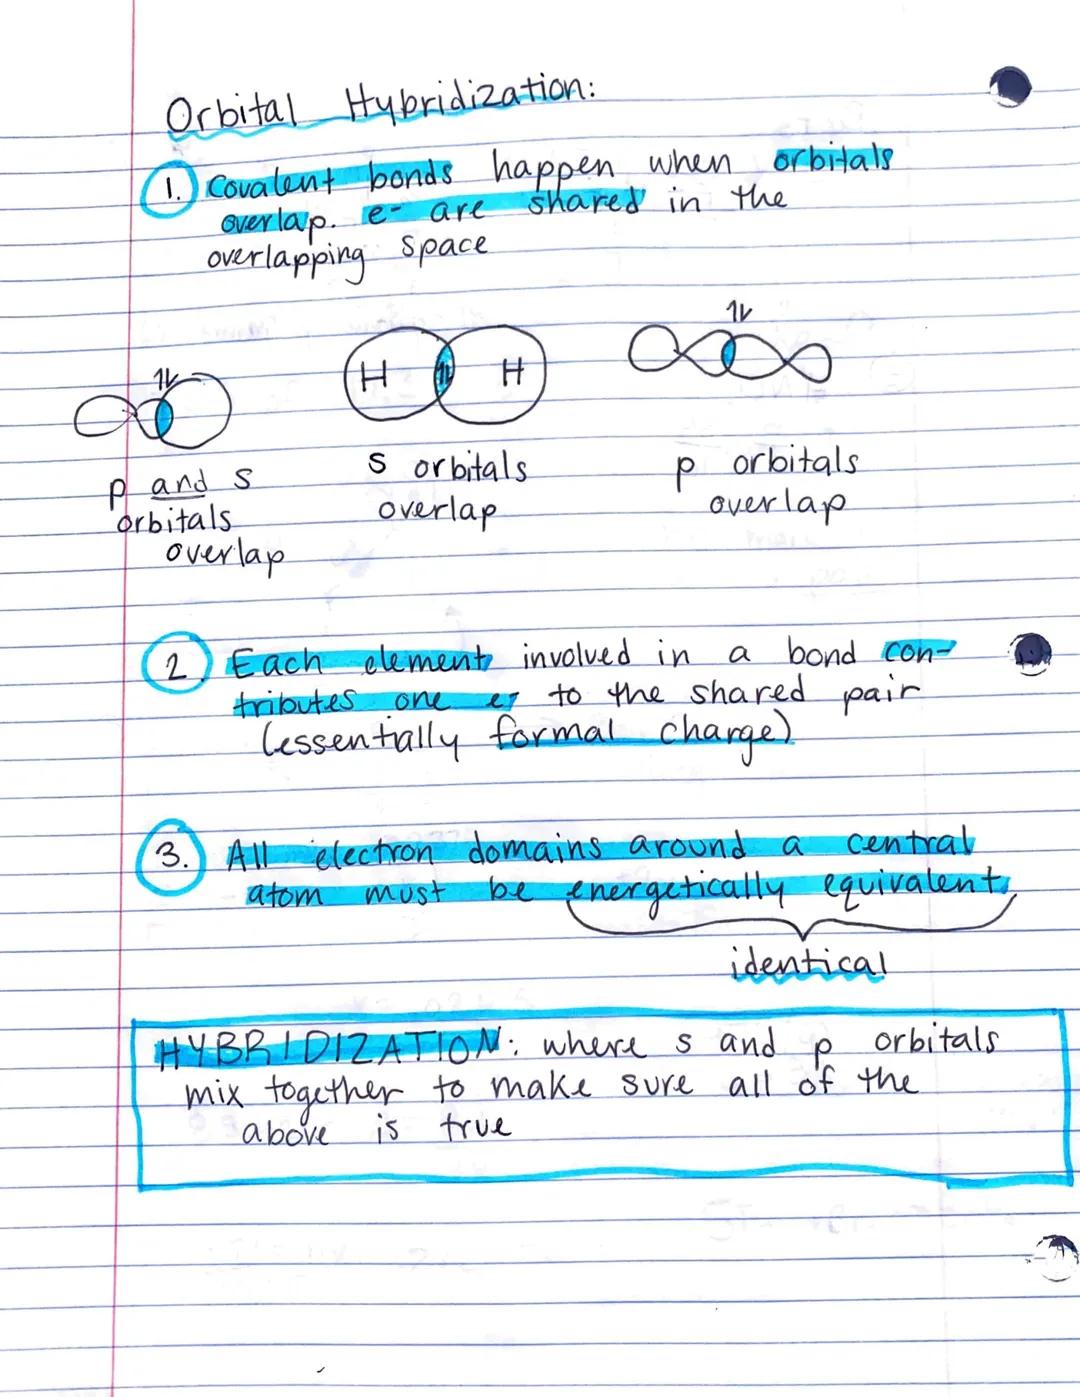 Orbital Hybridization:
1. Covalent bonds happen when orbitals
overlap. e- are shared in the
overlapping space
1L
H 1L H
1L
p and s
orbitals
overlap
s orbitals
overlap
p orbitals
overlap
2. Each element involved in a bond con-
tributes one e- to the shared pair
(essentially formal charge)
3. All electron domains around a central
atom must be energetically equivalent
identical
HYBRIDIZATION: where s and p orbitals
mix together to make sure all of the
above is true